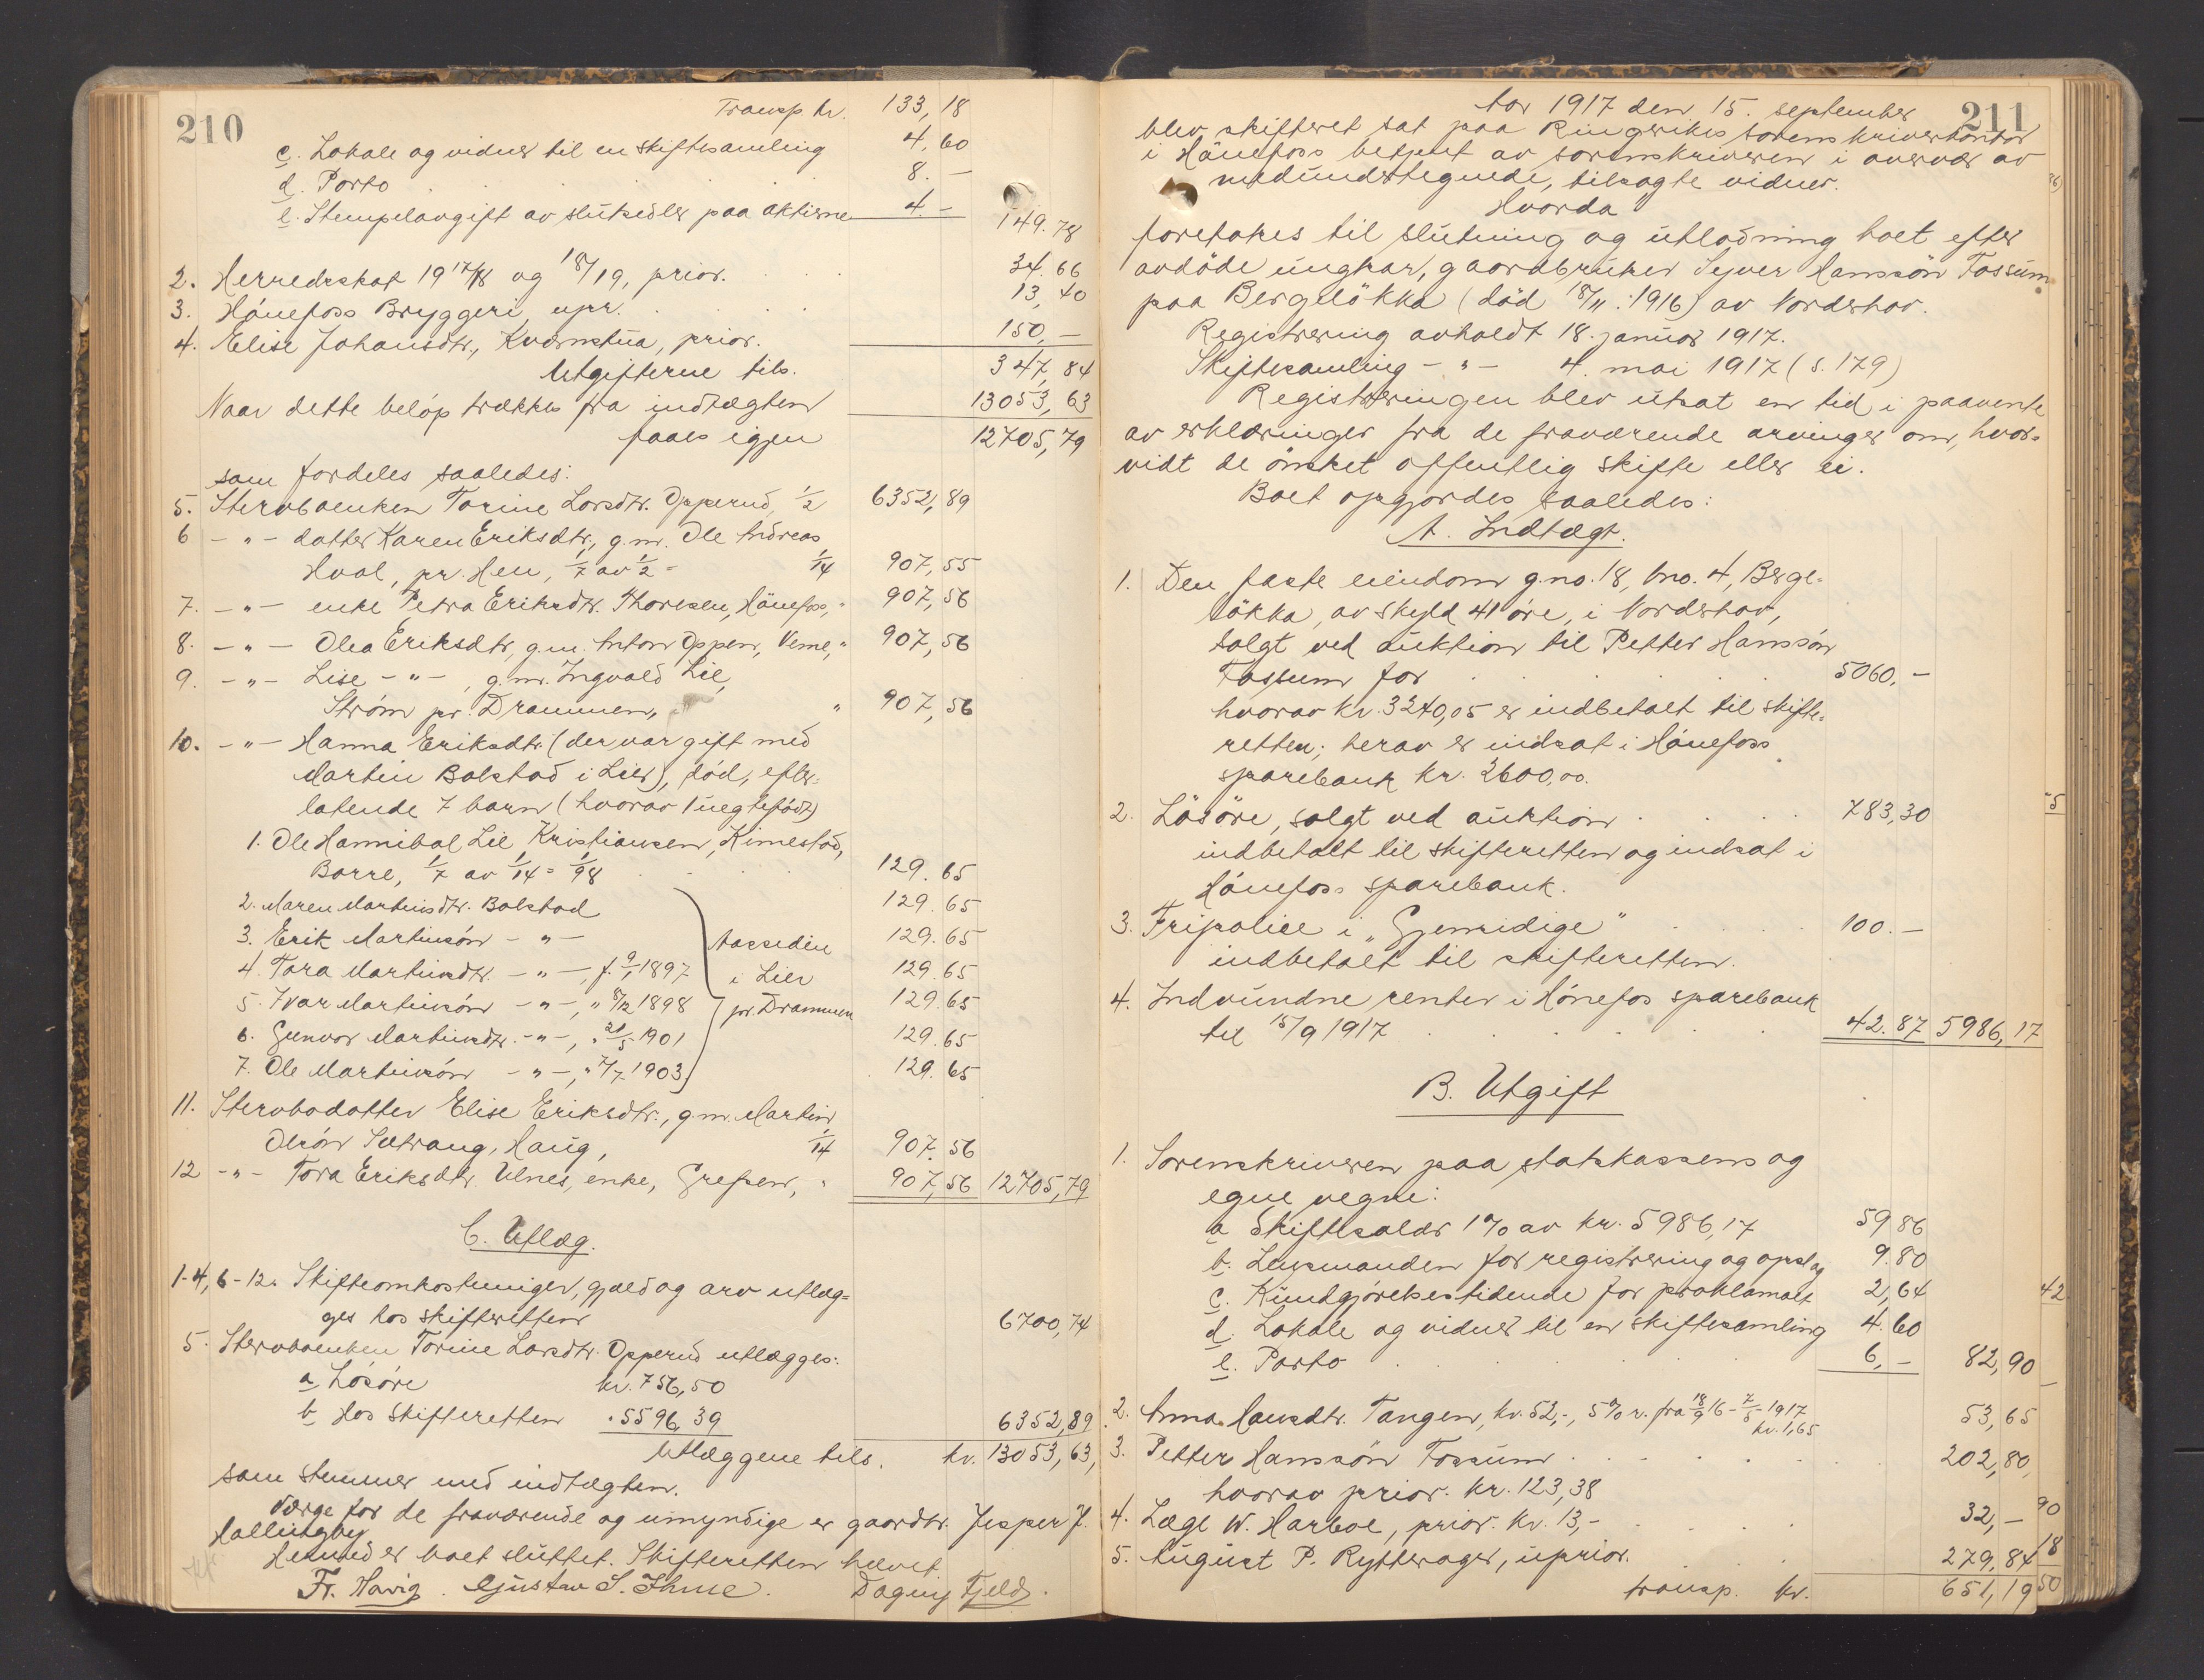 210
Transp. kr. 133,18
c. Lokale og vidner til en skiftesamling 4,60
d. Porto 8.–
e. Stempelavgift av slutsedler paa aktierne 4.– 149.78
2. Herredsskat 1917/18 og 18/19, prior. 34.66
3. Hönefoss Bryggeri, upr. 13,40
4. Elise Johansdtr., Kværnstua, prior. 150,–
Utgifterne tils. 347,84
Naar dette beløp trækkes fra indtægten 13053,63
faaes igjen 12705,79
som fordeles saaledes:
5. Stervboenken Torine Larsdtr. Opperud, 1/2 6352,89
6 – " – datter Karen Eriksdtr., g.m. Ole Andreas
Hval, pr. Hen, 1/7 av 1/2 = 1/14 907,55
7. – " – enke Petra Eriksdtr. Thoresen, Hönefoss, " 907,56
8. – " – Olea Eriksdtr, g.m. Anton Oppen, Veme, " 907,56
9. – " – Lise – " –, g.m. Ingvald Lie,
Strøm pr. Drammen, " 907,56
10. – " – Hanna Eriksdtr. (der var gift med
Martin Bolstad i Lier), död, efter-
latende 7 barn (hvorav 1 uegtefödt)
1. Ole Hannibal Lie Kristiansen, Kimestad,
Borre, 1/7 av 1/14 = 1/98 129.65
2. Maren Martinsdtr. Bolstad 129.65
3. Erik Martinsön – " – 129.65
4. Tora Martinsdtr. – " –, f. 9/1 1897 i Lier 129.65
5. Ivar Martinsön – " –, " 8/12 1898 pr. Drammen 129.65
6. Gunvor Martinsdtr. – " –, " 21/5 1901 129.65
7. Ole Martinsön – " –, " 7/7 1903 129.65
11. Stervbodatter Elise Eriksdtr., g.m. Martin
Olsön Sætrang, Haug, 1/14 907.56
12 – " – Tora Eriksdtr. Ulnes, enke, Grefsen, " 907,56 12705,79
C. Utlæg.
1-4, 6-12. Skifteomkostninger, gjæld og arv utlæg-
ges hos skifteretten 6700,74
5. Stervboenken Torine Larsdtr. Opperud utlægges:
a Løsøre kr. 756,50
b Hos Skifteretten " 5596,39 6352,89
Utlæggene tils. kr. 13053,63,
som stemmer med indtægten.
Værge for de fraværende og umyndige er gaardbr. Jesper J.
Hallingby
Hermed er boet sluttet. Skifteretten hævet
Fr. Havig. Gustav S. Ihme. Dagny Fjeld.
211
Aar 1917 den 15. september
blev skifteret sat paa Ringerikes sorenskriverkontor
i Hönefoss betjent av sorenskriveren i overvær av
medundertegnede, tilsagte vidner.
Hvorda
foretokes til slutning og utlodning boet efter
avdöde ungkar, gaardbruker Syver Hanssön Fossum
paa Bergelökka (död 18/11 1916) av Norderhov.
Registrering avholdt 18. januar 1917.
Skiftesamling – " – 4. mai 1917 (s. 179)
Registreringen blev utsat en tid i paavente
av erklæringer fra de fraværende arvinger om, hvor-
vidt de önsket offentlig skifte eller ei.
Boet opgjordes saaledes:
A. Indtægt.
1. Den faste eiendom g.no. 18, bno. 4, Berge-
lökka, av skyld 41 öre, i Norderhov,
solgt ved auktion til Petter Hanssön
Fossum for 5060.–
hvorav kr. 3240,05 er indbetalt til skifte-
retten; herav er indsat i Hönefoss
sparebank kr. 2600,00.
2. Lösöre, solgt ved auktion 783,30
indbetalt til skifteretten og indsat i
Hönefoss sparebank.
3. Fripolice i „Gjensidige" 100.–
indbetalt til skifteretten.
4. Indvundne renter i Hönefos sparebank
til 15/9 1917 42.87 5986,17
B. Utgift
1. Sorenskriveren paa statskassens og
egne vegne:
a Skiftesalær 1% av kr. 5986,17 59.86
b. Lensmanden for registrering og opslag 9.80
c. Kundgjörelsestidende for proklamaet 2,64
d. Lokale og vidner til en skiftesamling 4.60
e. Porto 6,– 82,90
2. Anna Hansdtr. Tangen, kr. 52,-, 5% r. fra 18/9 16 – 7/5 1917 kr. 1,65 53,65
3. Petter Hanssön Fossum 202,80
hvorav prior. kr. 123,38
4. Læge W. Harboe, prior. kr. 13,– 32,–
5. August P. Rytterager, uprior. 279,84
transp. kr. 651,19